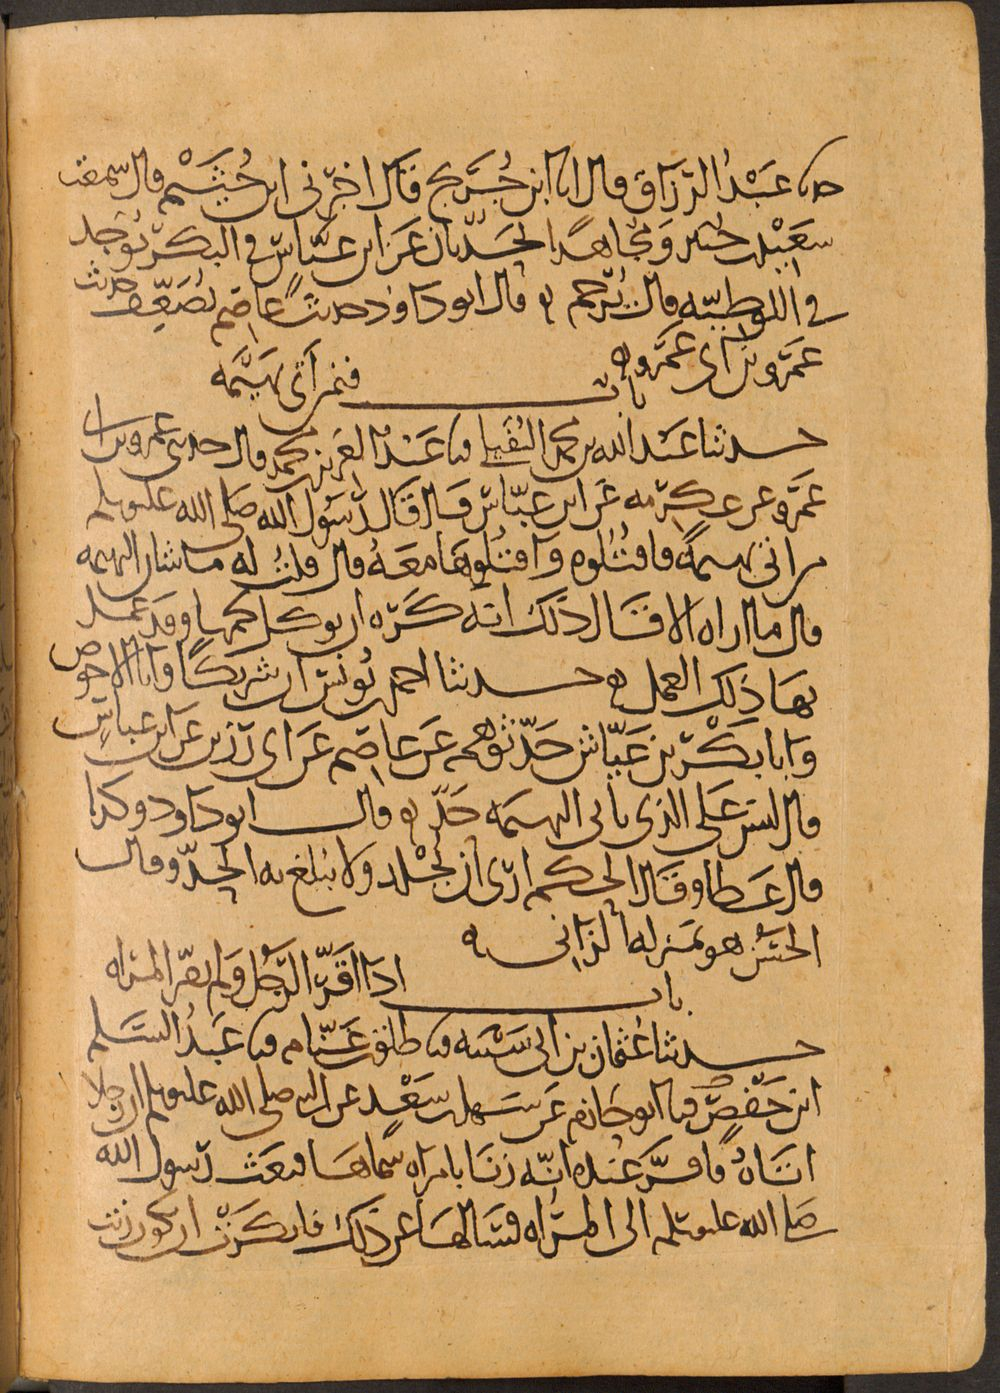 نا عَبْدُ الرزاق قال انا ابن جُرَيج قَال اخبَرني ابن خُثَيْم قال سمعت
سَعيْد بن جُبير وَمجَاهدًا يُحَدّثان عَن ابن عبّاسٍ في البكر يُوجَد
في اللوطيّه قال يُرجم ه قال ابو داود حديث عاصم يُضَعِّف حديث
عَمرو بن ابي عَمرو ه
باب فيمن اتى بهَيْمَه
حدثنا عَبْد الله بن محمد النُفيلي نا عَبْد العَزيز بن محمد قال حدثني عمرو بن ابي
عَمرو عن عكرمه عَن ابن عبّاس قال قَال رَسُول الله صَلى الله عليه وسلم
من اتى بهيمةً فاقتُلوه وَاقتُلوهَا معَهُ قال قلتُ له ما شان البهيمه
قال ما اراه الا قَال ذلك انه كَرِه ان يوكل لحمها وقد عُمل
بهَا ذلك العمل ه حدثنا احمد بن يُونُس ان شريكًا وَابا الاحوَص
وَابا بَكْر بن عَيّاش حَدّثوهم عَن عاصِم عَن ابي رَزين عَن ابن عباسٍ
قال ليسَ عَلى الذي ياتي البهيمَه حَدّ ه قال ابو داود وكذا
قال عَطا وقَال الحكم ارى ان يُجْلد ولا يُبلغ به الحدّ وقال
الحسَن هو بمَنزله الزاني ه
باب اذا اقَرّ الرّجُل وَلم تقرّ المراه
حدثنا عُثمان بن ابي شَيْبَه نا طلق بن غَنّام نا عَبدُ السّلم
ابن حَفْصٍ نا ابو حَازم عَن سَهل بن سَعْدٍ عن النبي صلى الله عليه وسلم ان رجلا
اتاهُ فاقرَّ عنده انّه زنَا بامراه سماهَا فبعَث رسول الله
صَلى الله عليه وسلم الى المرَاه فسَالهَا عن ذلك فانكرَتْ ان تكون زنت